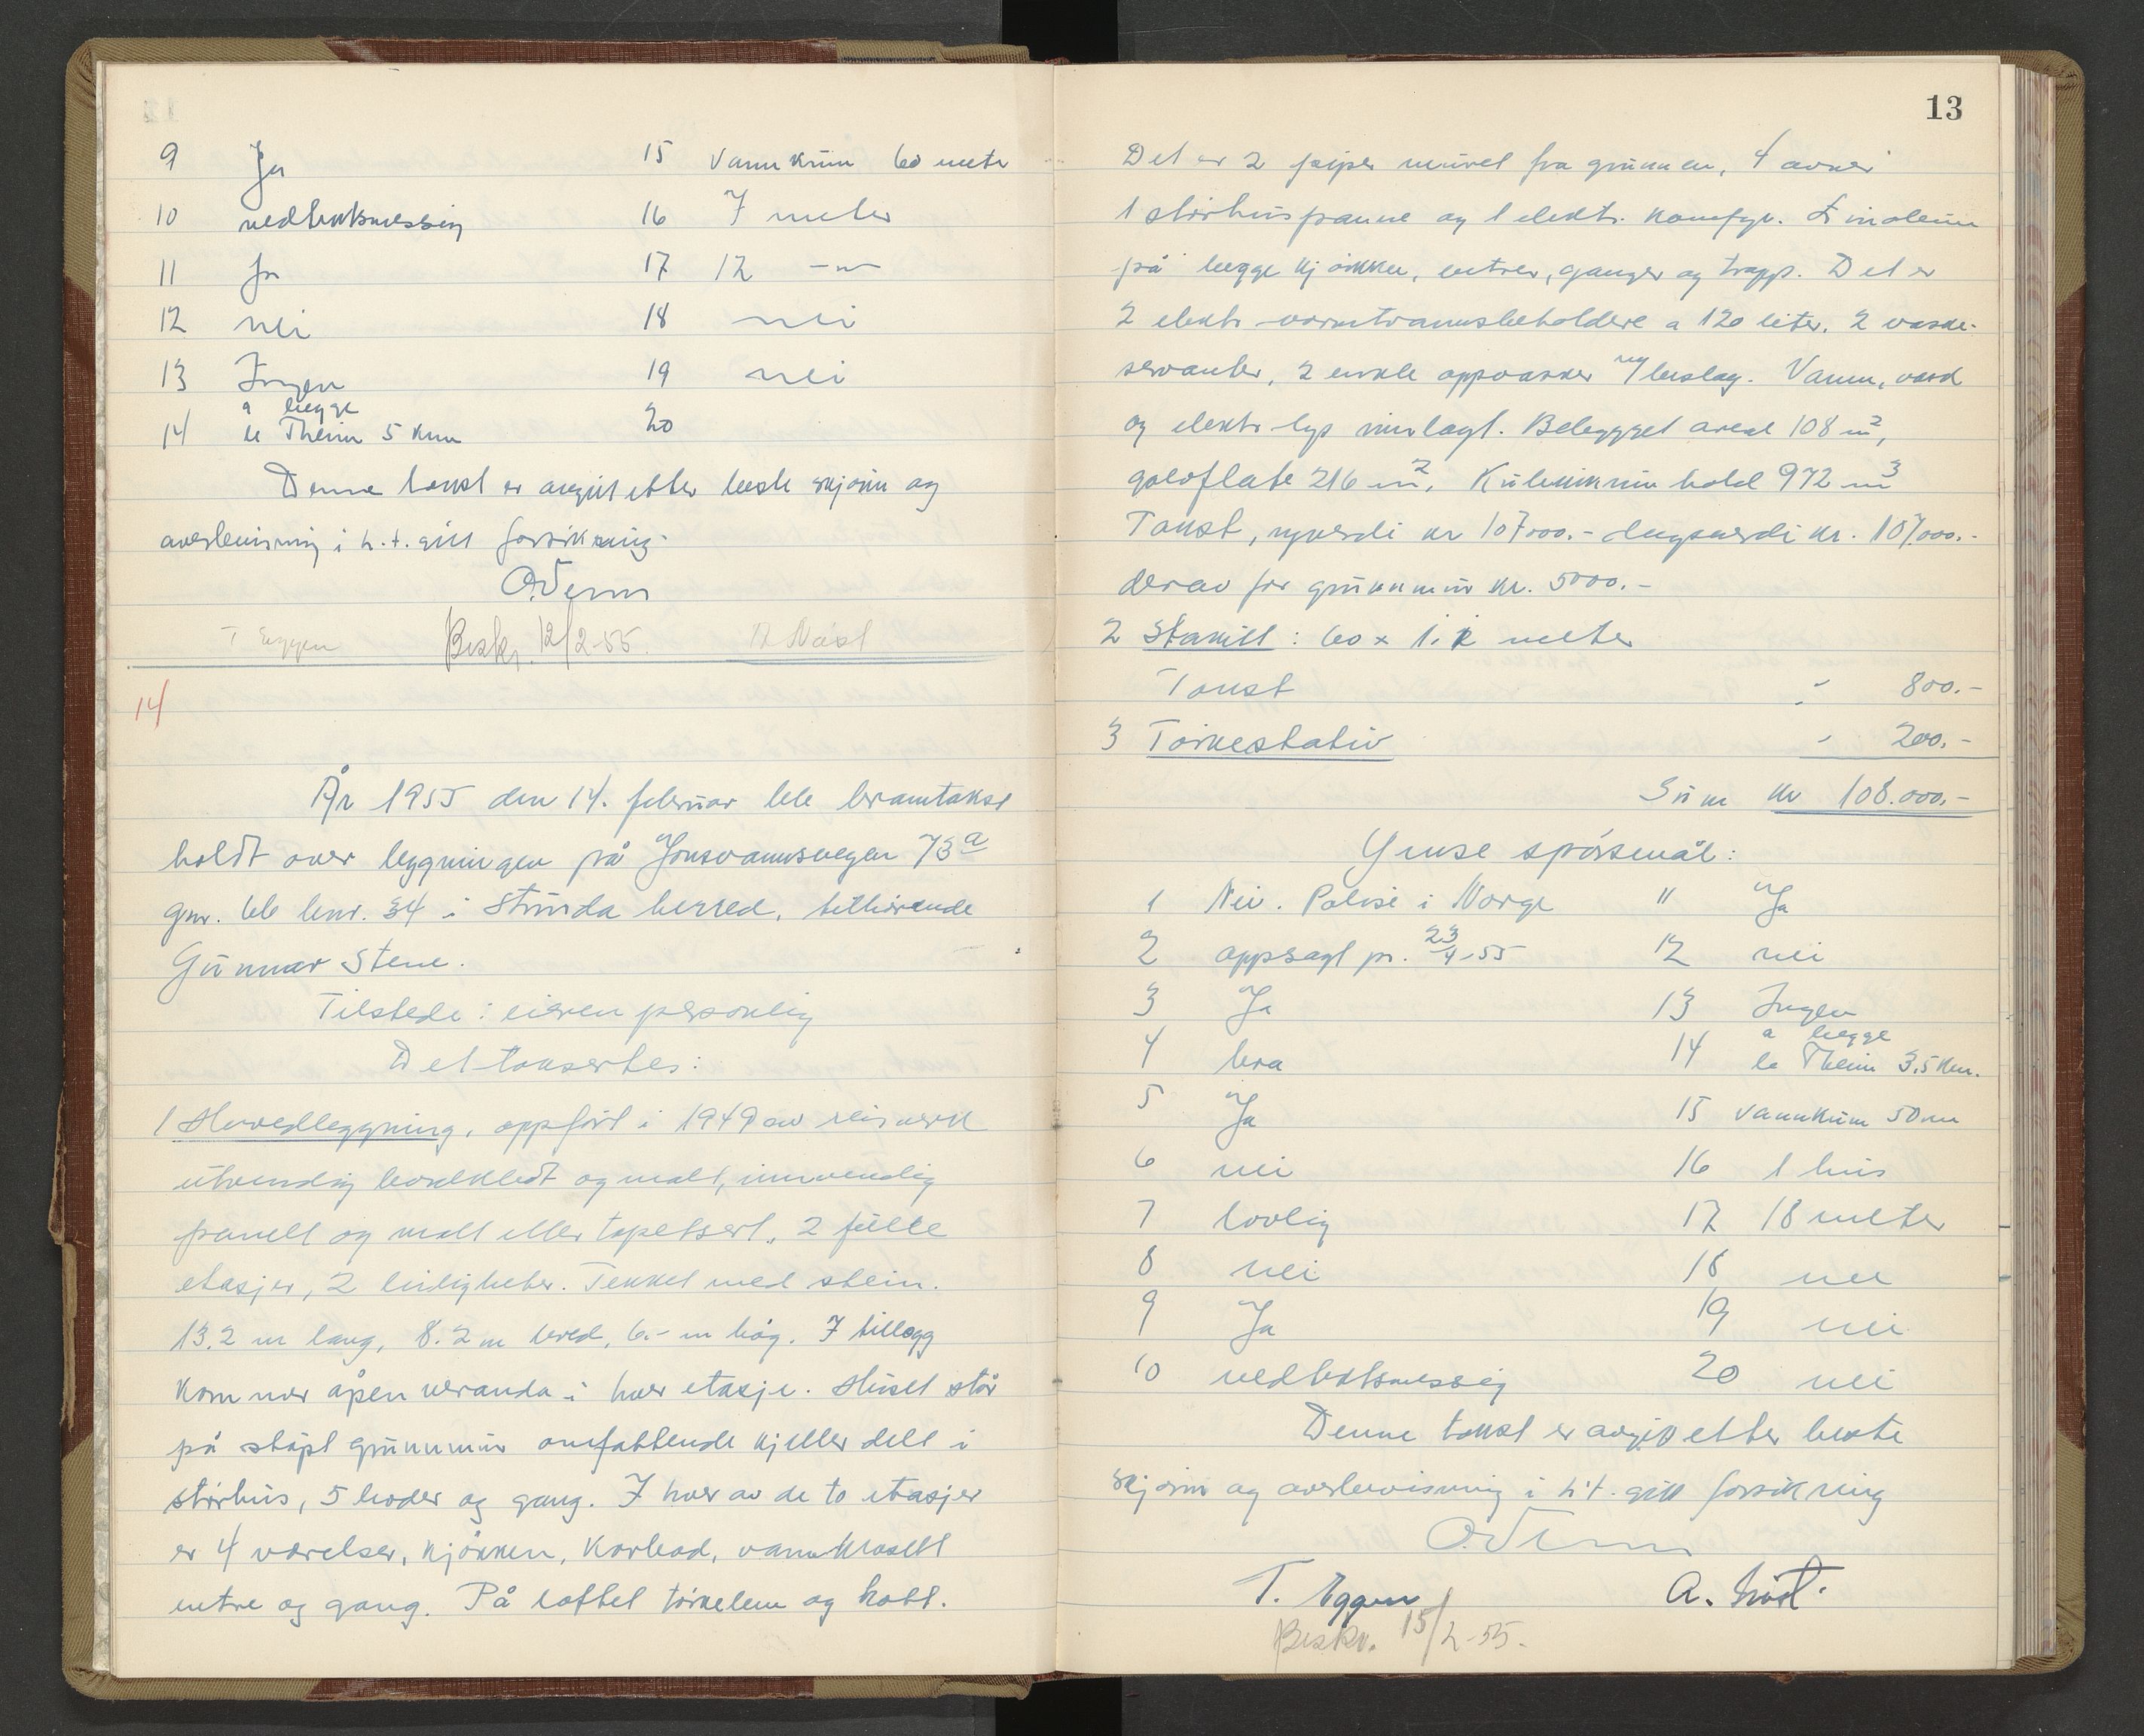 9 Ja 15 Vannkum 60 meter
10 vedtektsmessig 16 7 meter
11 Ja 17 12 —"—
12 nei 18 nei
13 Ingen 19 nei
a begge
14 b Theim 5 km 20
Denne takst er avgitt etter beste skjønn og
overbevisning i h.t. gitt forsikring.
O. Venn
T Eggen Beskr. 12/2-55. A Nøst
14
År 1955 den 14. februar ble branntakst
holdt over bygningen på Jonsvannsvegen 73a
gnr. 66 bnr. 34 i Strinda herred, tilhørende
Gunnar Stene.
Tilstede: eieren personlig
Det taksertes:
1 Hovedbygning, oppført i 1949 av reisverk
utvendig bordkledt og malt, innvendig
panelt og malt eller tapetsert, 2 fulle
etasjer, 2 leiligheter. Tekket med stein.
13.2 m lang, 8.2 m bred, 6.- m høg. I tillegg
kommer åpen veranda i hver etasje. Huset står
på støpt grunnmur omfattende kjeller delt i
størhus, 5 boder og gang. I hver av de to etasjer
er 4 værelser, kjøkken, karbad, vannklosett
entre og gang. På loftet tørkelem og kott.
13
Det er 2 piper muret fra grunnen, 4 ovner
1 størhuspanne og 1 elektr. komfyr. Linoleum
på begge kjøkken, entrer, ganger og trapp. Det er
2 elektr varmtvannsbeholdere a 120 liter. 2 vaske-
servanter, 2 enkle oppvasker m/beslag. Vann, vask
og elektr lys innlagt. Bebygget areal 108 m²,
golvflate 216 m². Kubikkinnhold 972 m³
Takst, nyverdi kr 107000.- dagsverdi kr. 107.000.-
derav for grunnmur kr. 5000.-
2 Stakitt: 60 x 1.2 meter
Takst " 800.-
3 Tørkestativ " 200.-
Sum kr 108.000.-
Ymse spørsmål:
1 Nei. Polise i Norge 11 Ja
2 oppsagt pr. 23/4-55 12 nei
3 Ja 13 Ingen
a begge
4 bra 14 b Theim 3,5 km.
5 Ja 15 vannkum 50 m
6 nei 16 1 hus
7 lovlig 17 18 meter
8 nei 18 nei
9 Ja 19 nei
10 vedtektsmessig 20 nei
Denne takst er avgitt etter beste
skjønn og overbevisning i h.t. gitt forsikring
O. Venn
T. Eggen A. Nøst.
Beskr. 15/2-55.